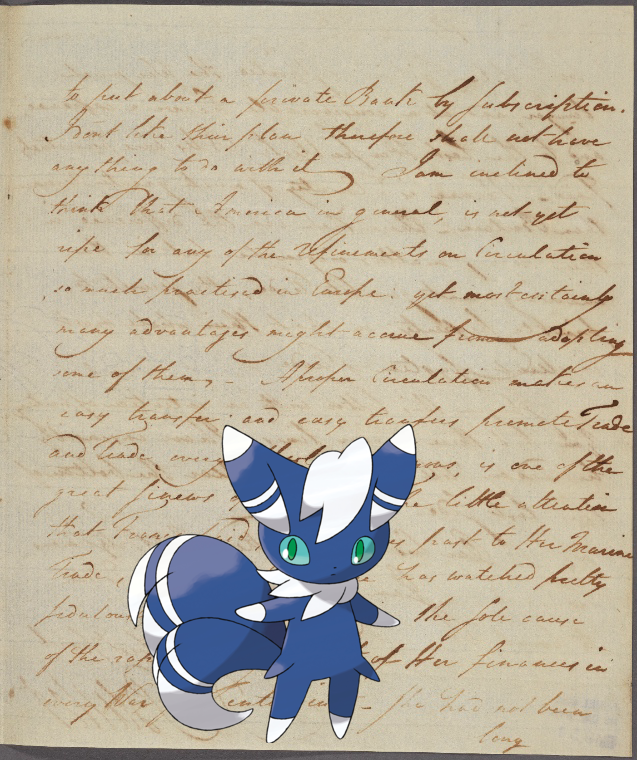 to put about a private Bank by Subscription.
I dont like their plan therefore shall not have
any thing to do with it I am inclined to
think that America in general, is not yet
ripe for any of the refinements on Circulation
so much practised in Europe. yet most certainly
many advantages might accrue from adopting
some of them, - A proper Circulation makes an
easy transfer. and easy transfers promote Trade
and Trade, every is one of the
great Sinews little attention
that past to Her Marine
Trade, has watched pretty
the sole cause
of the of Her finances in
every War - She had not been
long